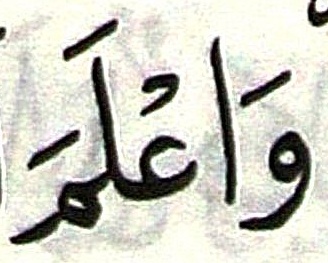 وَاعْلَمَ